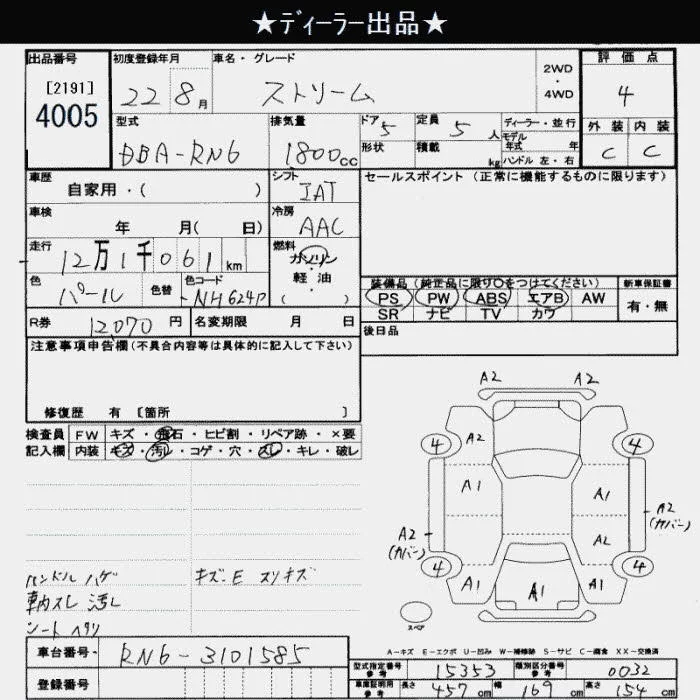 ★ディーラー出品★
出品番号 初度登録年月 車名・グレード 2WD・4WD 評価点
[2191] 4005 22 8月 ストリーム 4
型式 排気量 ドア 5 定員 5人 ディーラー・並行 外装 内装
DBA-RN6 1800cc 形状 積載 kg モデル年式 年 C C
ハンドル 左・右
車歴 シフト セールスポイント (正常に機能するものに限ります)
自家用・( ) IAT
車検 冷房
年 月( 日) AAC
走行 燃料
12万1千061km ガソリン・軽油
色 色替 色コード ( ) 装備品(純正品に限り○をつけてください) 新車保証書
パール NH624P PS PW ABS エアB AW 有・無
SR ナビ TV カワ
R券 12070円 名変期限 月 日 後日品
注意事項申告欄(不具合内容等は具体的に記入して下さい)
修復歴 有 [箇所 ]
検査員 FW キズ・飛石・ヒビ割・リペア跡・×要
記入欄 内装 キズ・汚レ・コゲ・穴・スレ・キレ・破レ
A2 A2
4 A2 4
A1 A1
A2 (カバー) A2 A2 (カバー)
4 A1 A1 A1 4
ハンドル ハゲ キズ・E スリキズ
車内スレ 汚レ
シート ヘタリ
スペア
A-キズ E-エクボ U-凹み W-補修跡 S-サビ C-腐食 XX-交換済
車台番号 RN6-3101585
登録番号
型式指定番号 参考 15353 類別区分番号 参考 0032
車庫証明用 参考 長さ 457cm 幅 169cm 高さ 154cm